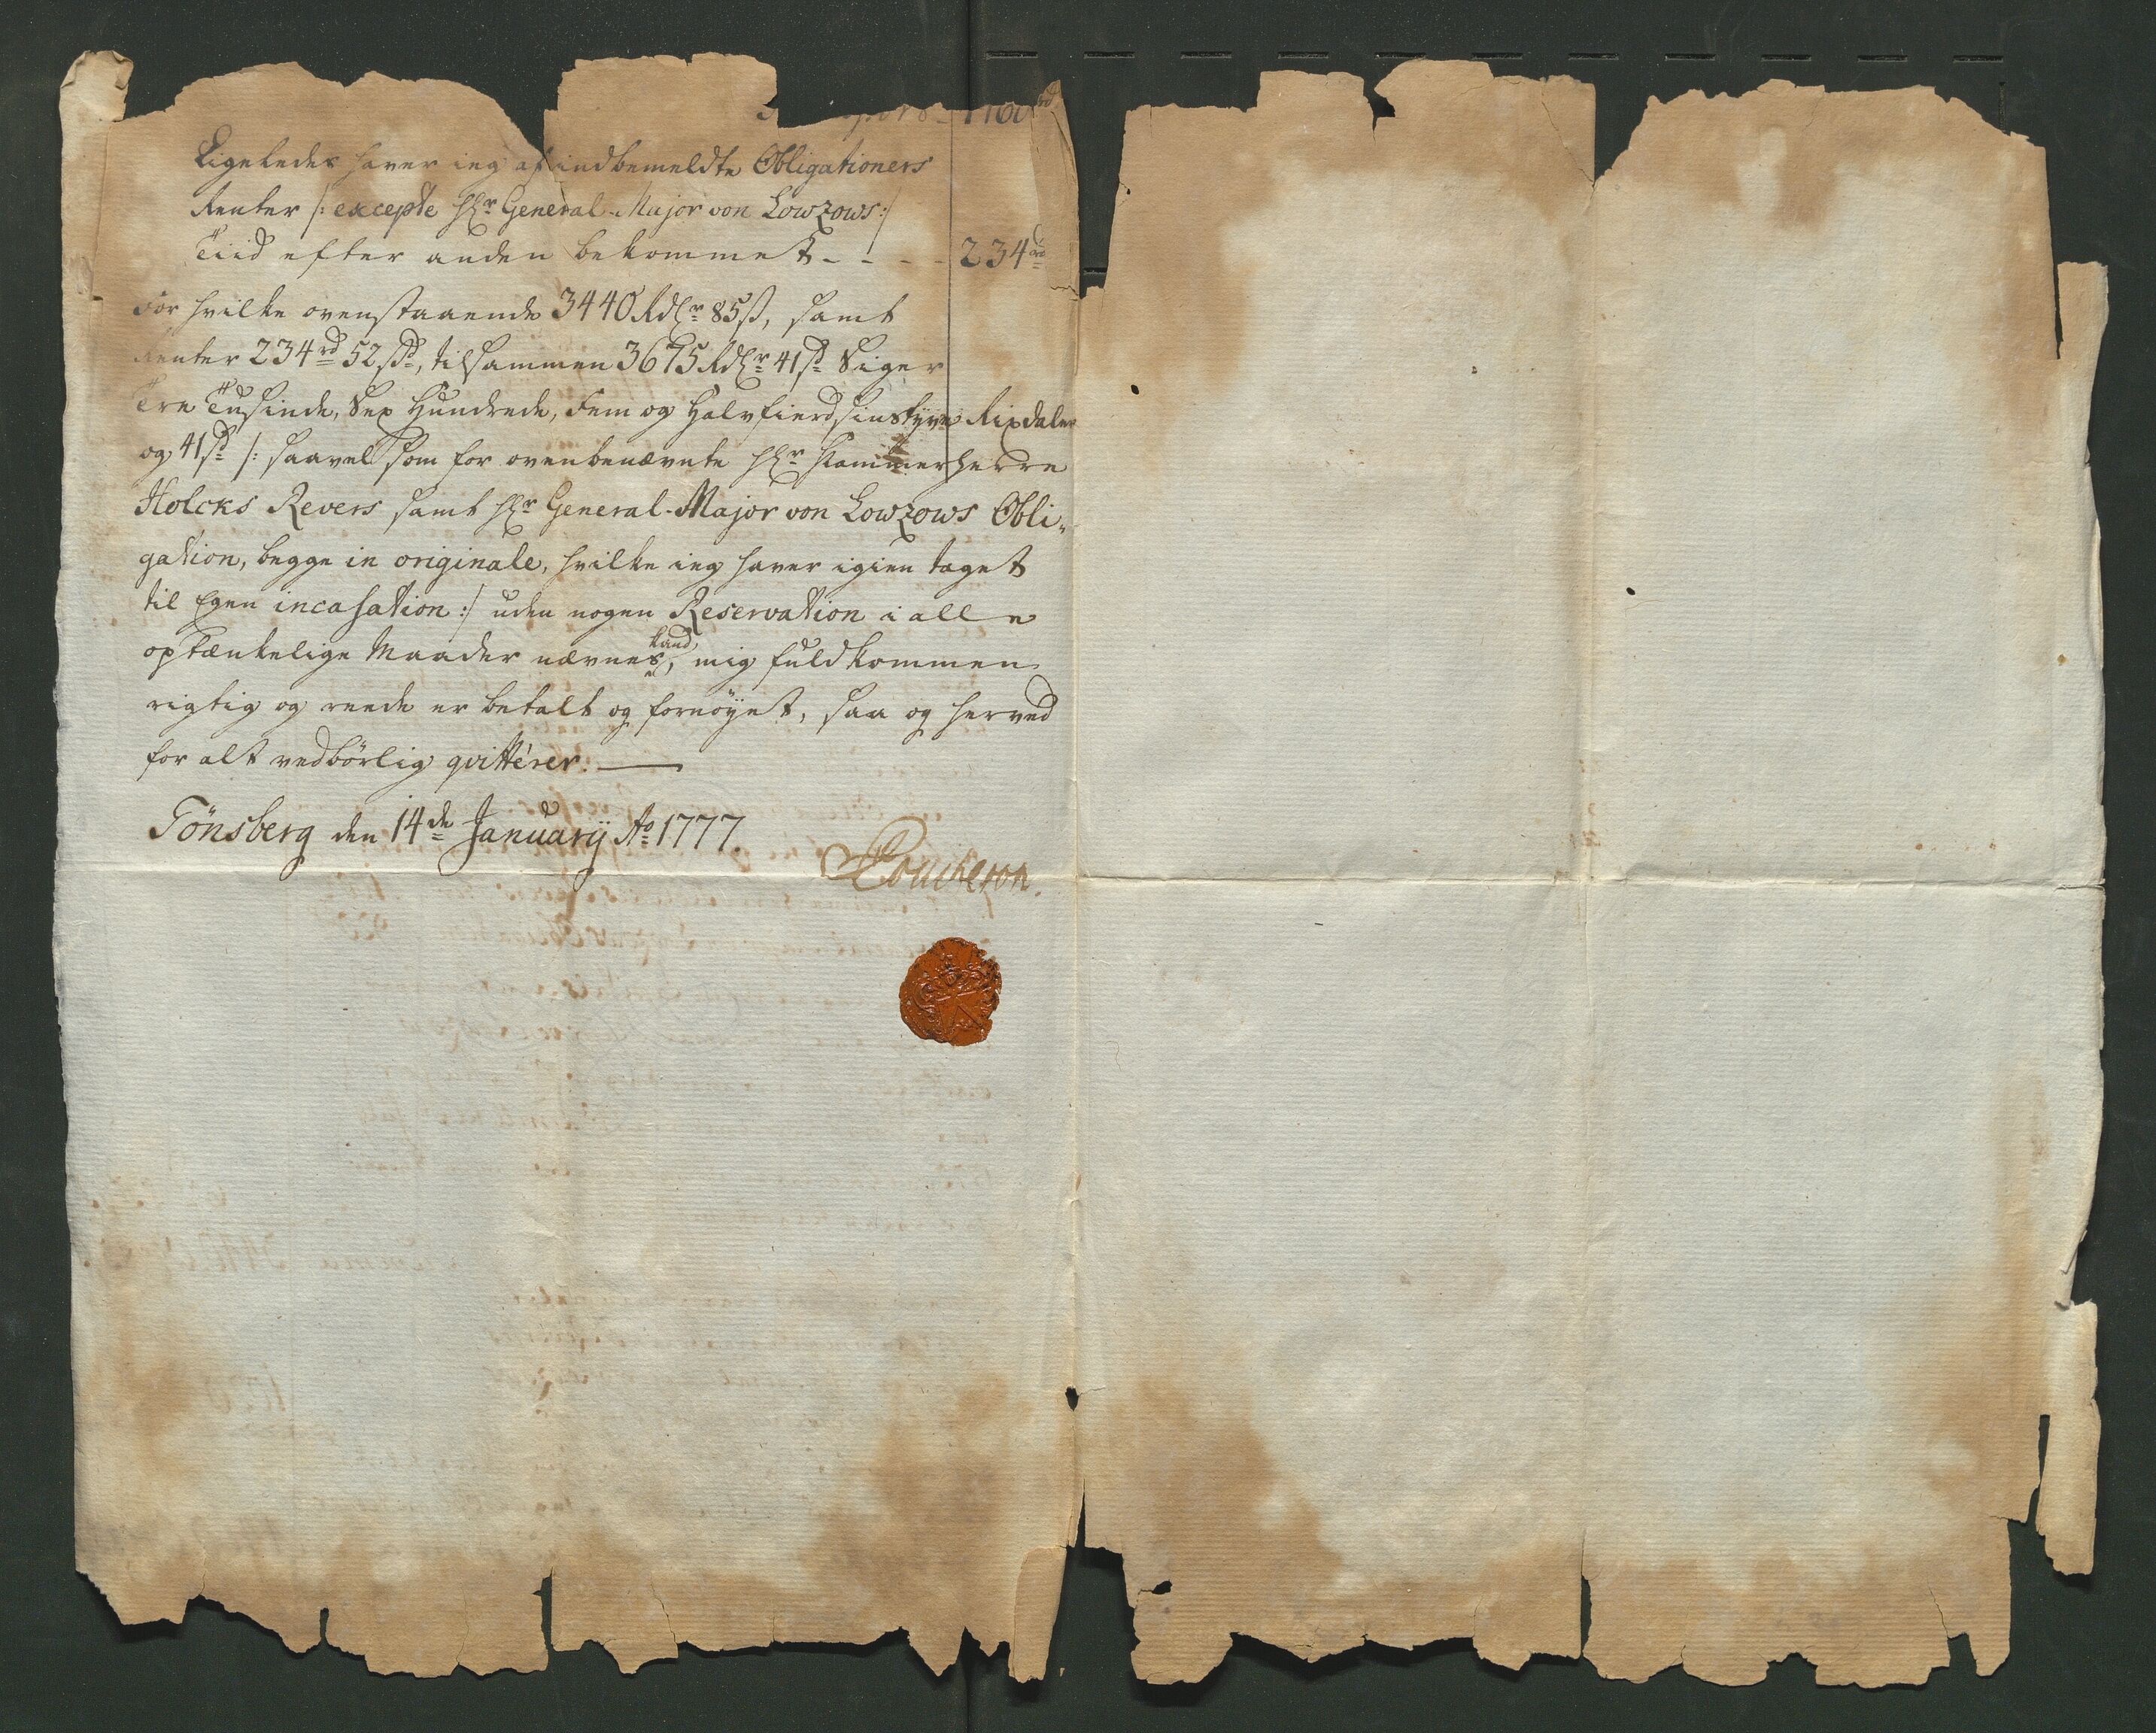 Ligeledes haver ieg af indbemeldte Obligationers
Renter /: excepte Hr. General-Major von Lowzows :/
Tiid efter anden bekommet - - - - 234 rd
For hvilke ovenstaaende 3440 Rdlr 85 ß, samt
Renter 234 rd 52 ß, tilsammen 3675 Rdlr 41 ß Siger
Tre Tusinde, Sex Hundrede, Fem og Halvfierdsinstyve Rixdaler
og 41 ß /: saavel som for ovenbenævnte Hr. Kammerherre
Holcks Revers samt Hr. General-Major von Lowzows Obli-
gation, begge in originale, hvilke ieg haver igien taget
til Egen incasation :/ uden nogen Reservation i alle
optænkelige Maader nævnes kand, mig fuldkommen
rigtig og reede er betalt og fornöyet, saa og herved
for alt vedbörlig qvittérer.
Tönsberg den 14de Januarij Ao 1777.
Coucheron.